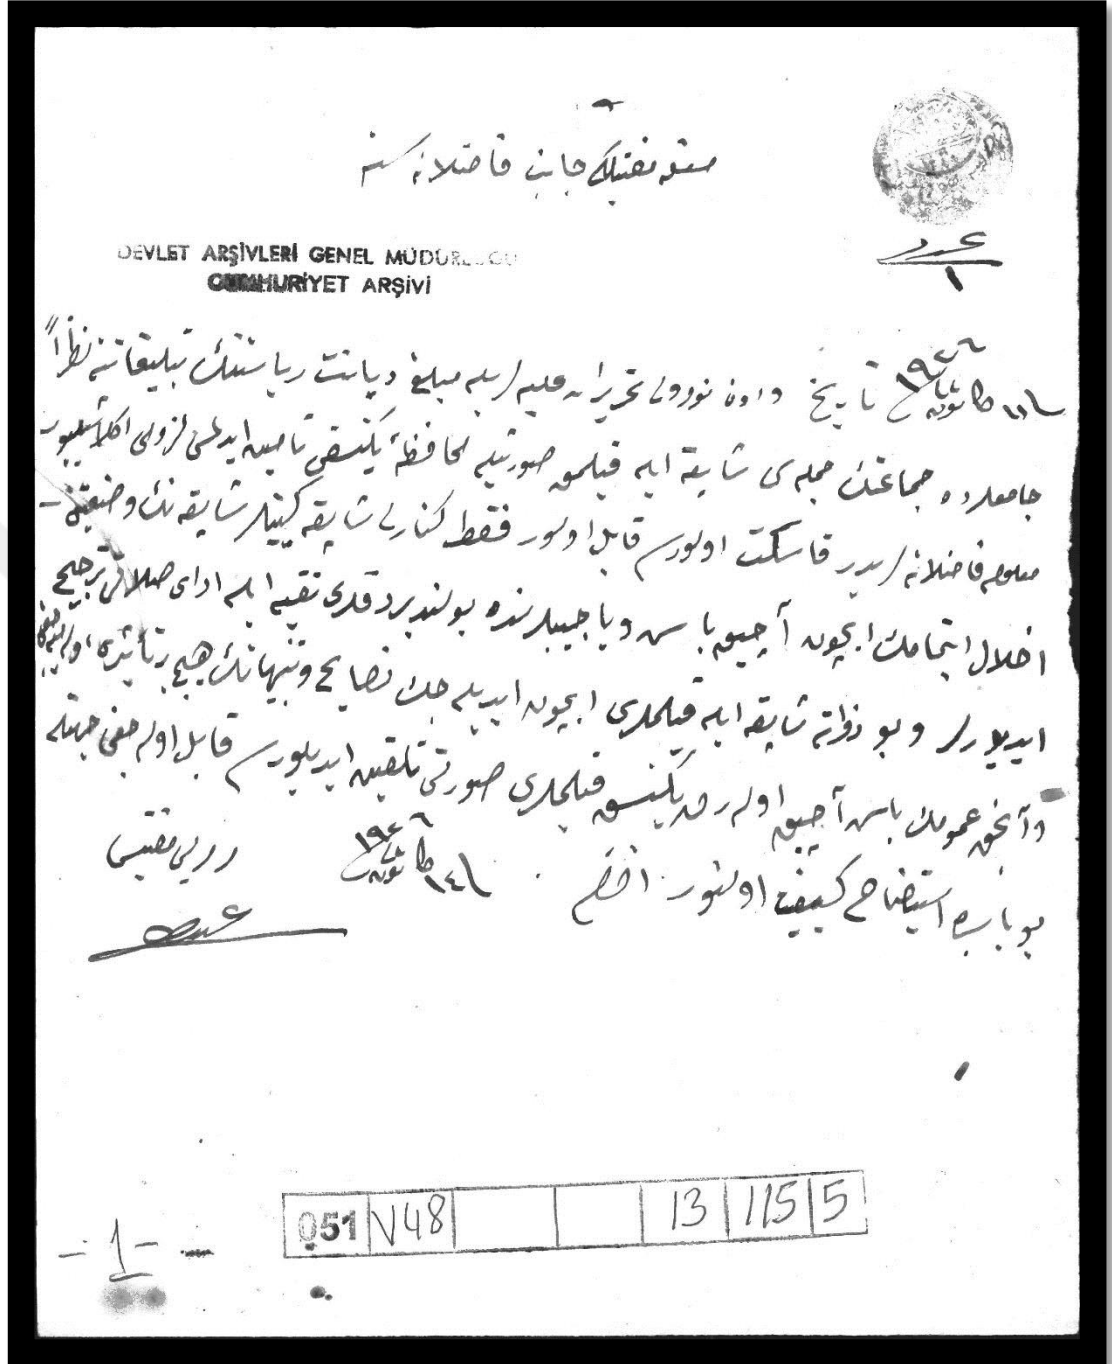 مفتيلكی جانب فاضلانه سنه
عدد
١
DEVLET ARŞİVLERİ GENEL MÜDÜRLÜĞÜ
CUMHURİYET ARŞİVİ
كانون ثانی ١٩٢٦ تاريخ و اون نورولی تحريرات عليه لريله مبلغ ديانت رياستنك تبليغاتنه نظراً
جامعلرده جماعتك جمله‌سی شاپقه ايله قيلمق صورتيله محافظهٔ يكنسقی تأمين ايدلمسی لزومی اكلاشيليور
معلوم فاضلانه لريدر قاسكت اولورسه قابل اولور فقط كنارلی شاپقه كيينلر شاپقه نك وضعيتنی
اخلال ايتمامك ايچون آچيق باش ويا جيبلرنده بولنديردقلری تقيه ايله ادای صلاتی ترجيح
ايديورلر و بو ذواته شاپقه ايله قيلملری ايچون ايديله جك نصايح و تنبيهاتك هيچ بر تأثيری اوله‌ميه‌جغی
و آنجق عمومك باش آچيق اوله‌رق يكنسق قيلملری صورتی تلقين ايديلورسه قابل اوله جغی جهتله
بو بابده استيضاح كيفيت اولنور افندم ١٤ كانون ثانی ١٩٢٦
مفتيسی
051 V48 13 115 5
- 1 -